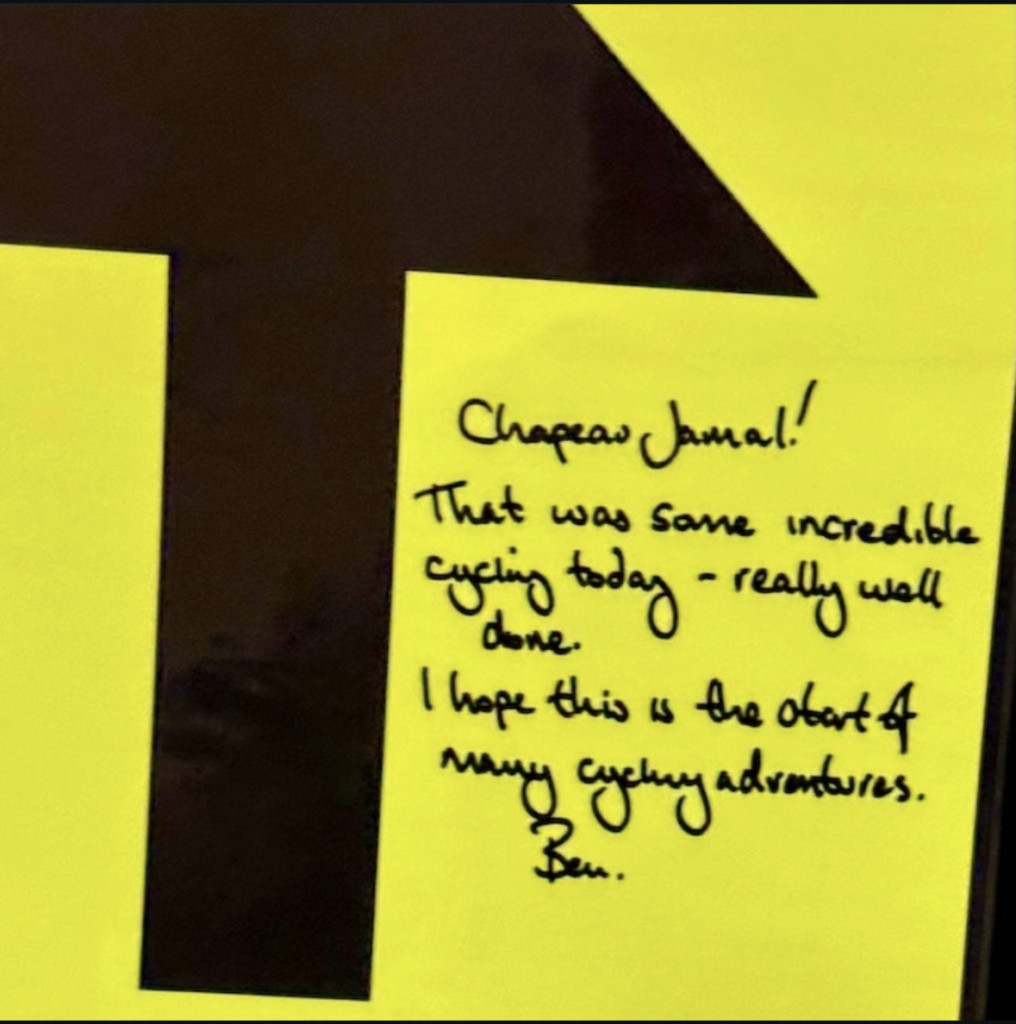 Chapeau Jamal!
That was some incredible
cycling today - really well
done.
I hope this is the start of
many cycling adventures.
Ben.